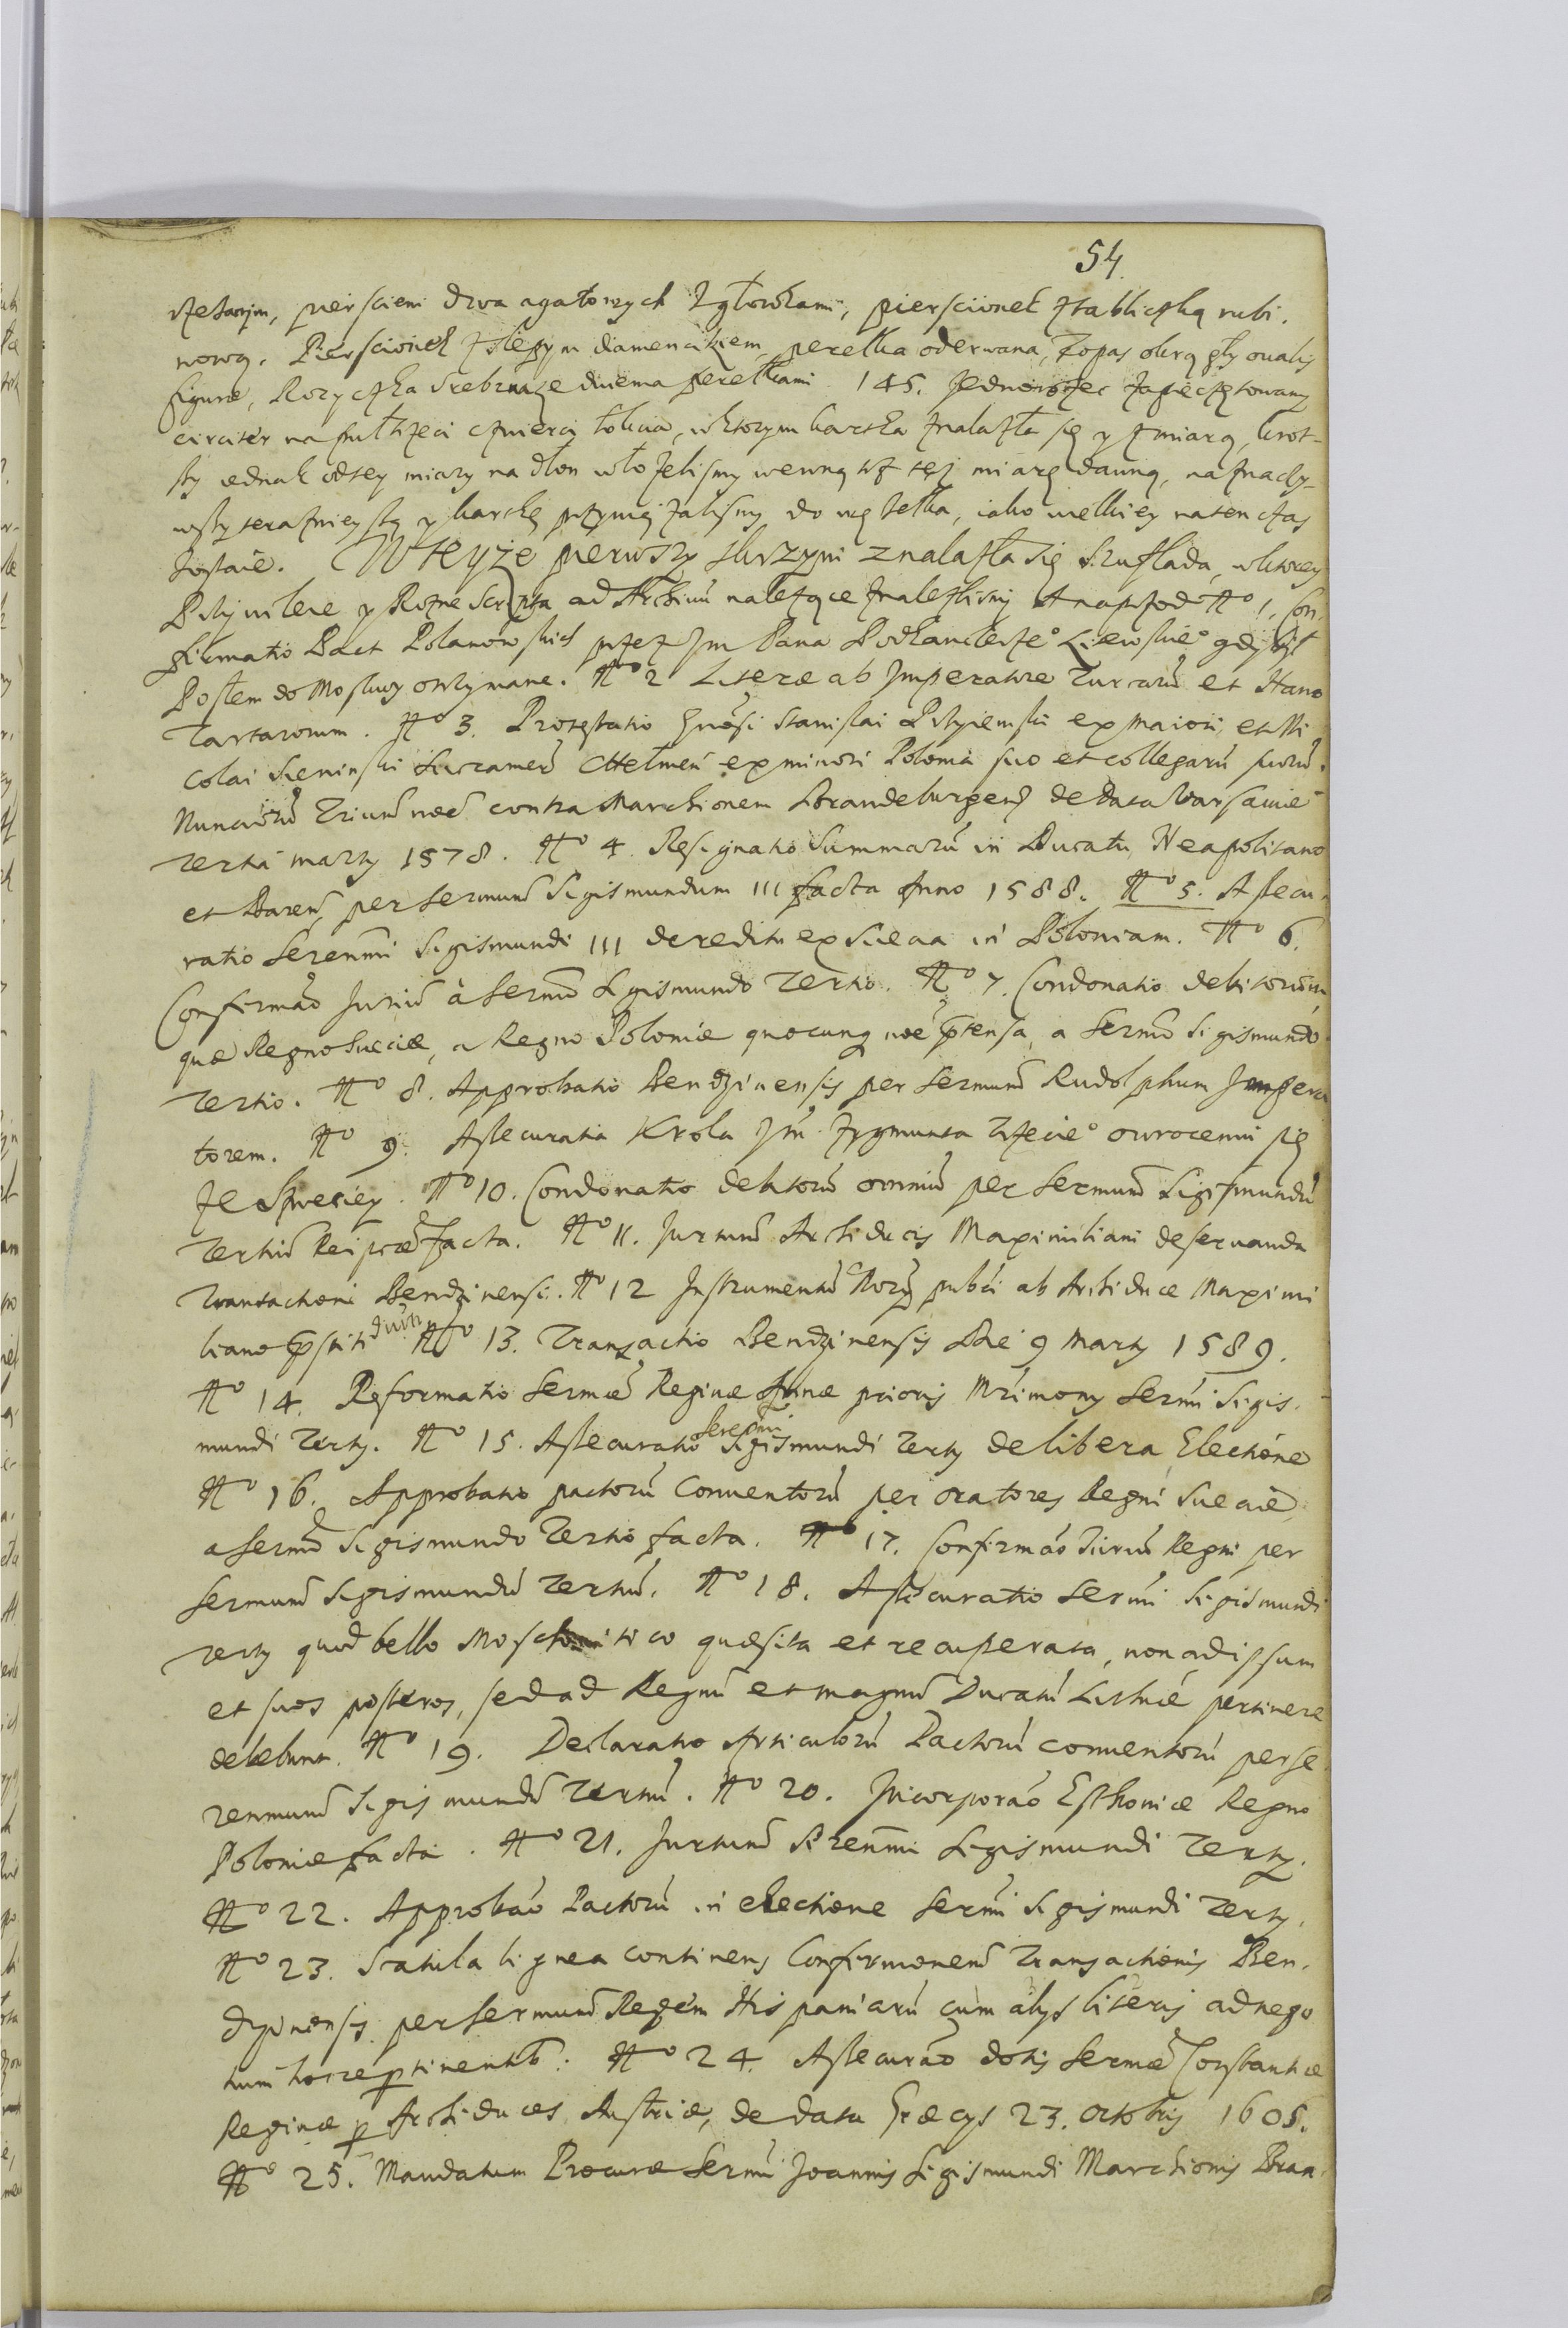 54.
pierscieni dwa agatowych z głowkami, pierscionek z tabliczką rubi.
nową. Pierscionek z slepym diamencikiem, perełka oderwana, Topas okrągły oualis
figuræ, Rozyczka srebrna ze dwiema perełkami. 145. Jednorozec zapieczętowany
circiter na pułtrzeci czwierci łokcia, w ktorym kartka znalazła się y z miarą, krot-
szy iednak o tey miary na dłon włozelismy wewnątrz tęż miarę dawną, naznaczy-
wszy teraznieyszą y kartkę przywięzalismy do węzełka, iako wielkiey natenczas
zostaie. W teyże pierwszy skrzyni znalazła się Szuflada, w ktorey
Przywileie y Rozne Scripta ad Archiuũ nalezące znalezlismy A naprzod Nº 1. Con-
firmatio Pact Polanowskich przez Jm Pana Podkanclerzeº Litewskieº gdy był
Posłem do Moskwy otrzymane. Nº 2 Literæ ab Imperatore Turcarũ et Hano
Tartarorum. Nº 3. Protestatio Gnosi Stanislai Przyiemski ex maiori, et Ni
colai Sieninski ex minori Polonia suo et collegarũ suorũ
Nunciorũ contra Marchionem Brandeburgens de data Warsauiæ
tertia marty 1578. Nº 4. Resignatio Summarũ in Ducatu Neapolitano
et Barens per sermum Sigismundum III facta Anno 1588. Nº 5. Assecu-
ratio Serenmi Sigismundi III de reditu ex Suecia in Poloniam. Nº 6.
Confirmao Jurium à sermo Sigismundo Tertio. Nº 7. Condonatio debitorum
quæ Regno Sueciæ, a Regno Poloniæ quocunq noe ptensa, a Sermo Sigismundo
Tertio. Nº 8. Approbatio Bendzinensis per Sermum Rudolphum Impera
torem. Nº 9. Assecuratia Krola Jm Zygmunta Trzecieº o wroceniu się
ze Szweciey. Nº 10. Condonatio debitorũ omniũ per Sermum Sigismundũ
Tertiũ Reipcæ facta. Nº 11. Jurtum Archiducis Maximiliani de seruanda
Transactioni Bendzinensi. Nº 12 Instrumentũ pubci ab Archiduce Maximi
liano pstiti Nº 13. Transactio Bendzinensis Die 9 Marty 1589.
Nº 14. Reformatio Sermæ Reginæ Annæ prioris Mrimony Sermi Sigis-
mundi Terty. Nº 15. Assecuratio Serenmi Sigismundi Terty de libera Electione
Nº 16. Approbatio pactorũ Conuentorũ per oratores Regni Sueciæ,
a Sermo Sigismundo Tertio facta. Nº 17. Confirmao Jurium Regni per
Sermum Sigismundũ Tertiũ. Nº 18. Assecuratio Sermi Sigismundi
Terty quod bello Moschouitico quæsita et recuperata, non ad ipsum
et suos posteros, sed ad Regnũ et magnũ Ducatũ Lithuæ pertinere
debebunt. Nº 19. Declaratio Articulorũ Pactorũ conuentorũ per Se
renmum Sigismundũ Tertiũ. Nº 20. Incorporao Esthoniæ Regno
Poloniæ facta. Nº 21. Jurtum Serenmi Sigismundi Terty.
Nº 22. Approbao Pactorũ in electione Sermi Sigismundi Terty.
Nº 23. Scatula lignea continens Confirmonem Transactionis Ben-
dzinensis per Sermum Regem Hispaniarũ cum alys literis ad nego
tium hocce ptinentib. Nº 24. Assecurao dotis Sermæ Constantiæ
Reginæ p Archiduces Austriæ, de data Græcys 23. Octobris 1605.
Nº 25. Mandatum Procuræ Sermi Joannis Sigismundi Marchionis Bran-